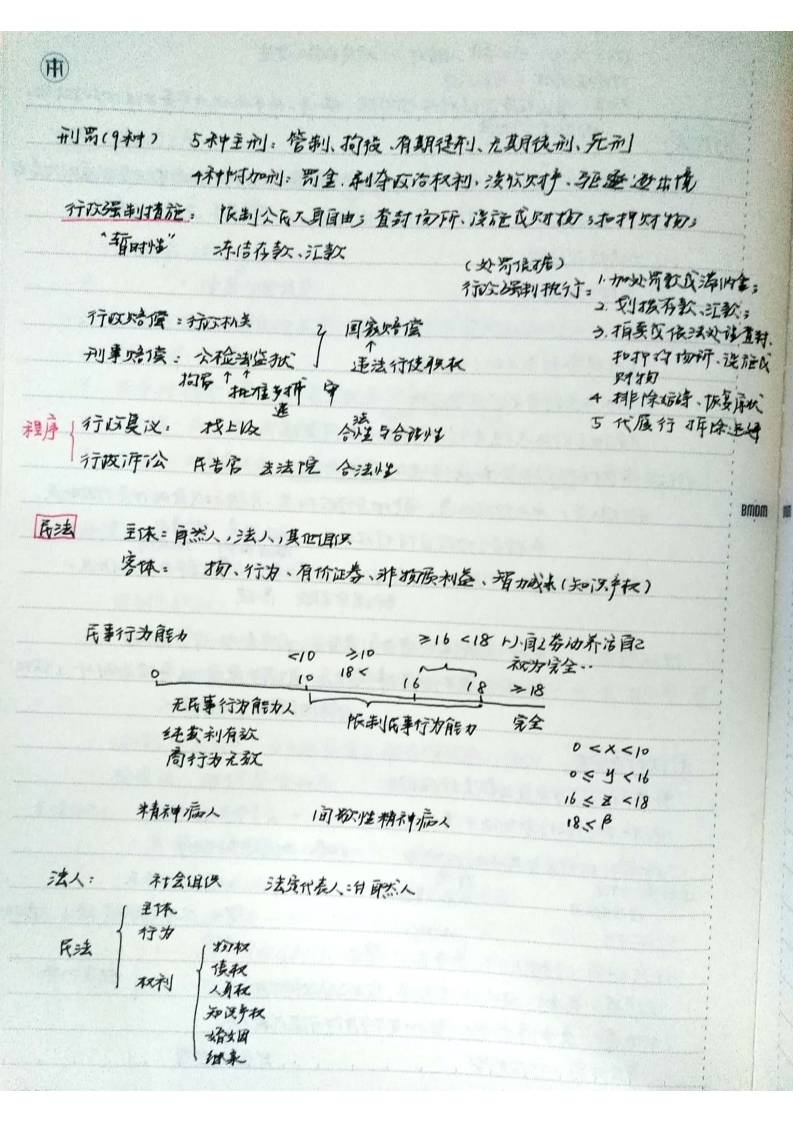 刑罚(9种) 5种主刑：管制、拘役、有期徒刑、无期徒刑、死刑
4种附加刑：罚金、剥夺政治权利、没收财产、驱逐出境
行政强制措施：限制公民人身自由；查封场所、设施或财物；扣押财物；
“暂时性” 冻结存款、汇款
(处罚依据)
行政强制执行：1. 加处罚款或滞纳金；
2. 划拨存款、汇款；
3. 拍卖或依法处理查封、
扣押的场所、设施或
财物
4 排除妨碍、恢复原状
5 代履行 拆除违建
行政赔偿：行政机关 国家赔偿
刑事赔偿：公检法监狱 ↑ 违法行使职权
拘留 ↑ 批准 ↑ 逮捕 审
程序 行政复议：找上级 合法性与合理性
行政诉讼 民告官 去法院 合法性
BMDM
民法 主体：自然人，法人，其他组织
客体：物、行为、有价证券、非物质利益、智力成果(知识产权)
民事行为能力 ≥16 <18 以自己劳动养活自己
视为完全..
<10 ≥10
18<
0 10 16 18 ≥18
无民事行为能力人 限制民事行为能力 完全
纯获利有效
商行为无效
0<x<10
0≤y<16
16≤z<18
18≤β
精神病人 间歇性精神病人
法人： 社会组织 法定代表人：自然人
民法 主体
行为
权利 物权
债权
人身权
知识产权
婚姻
继承